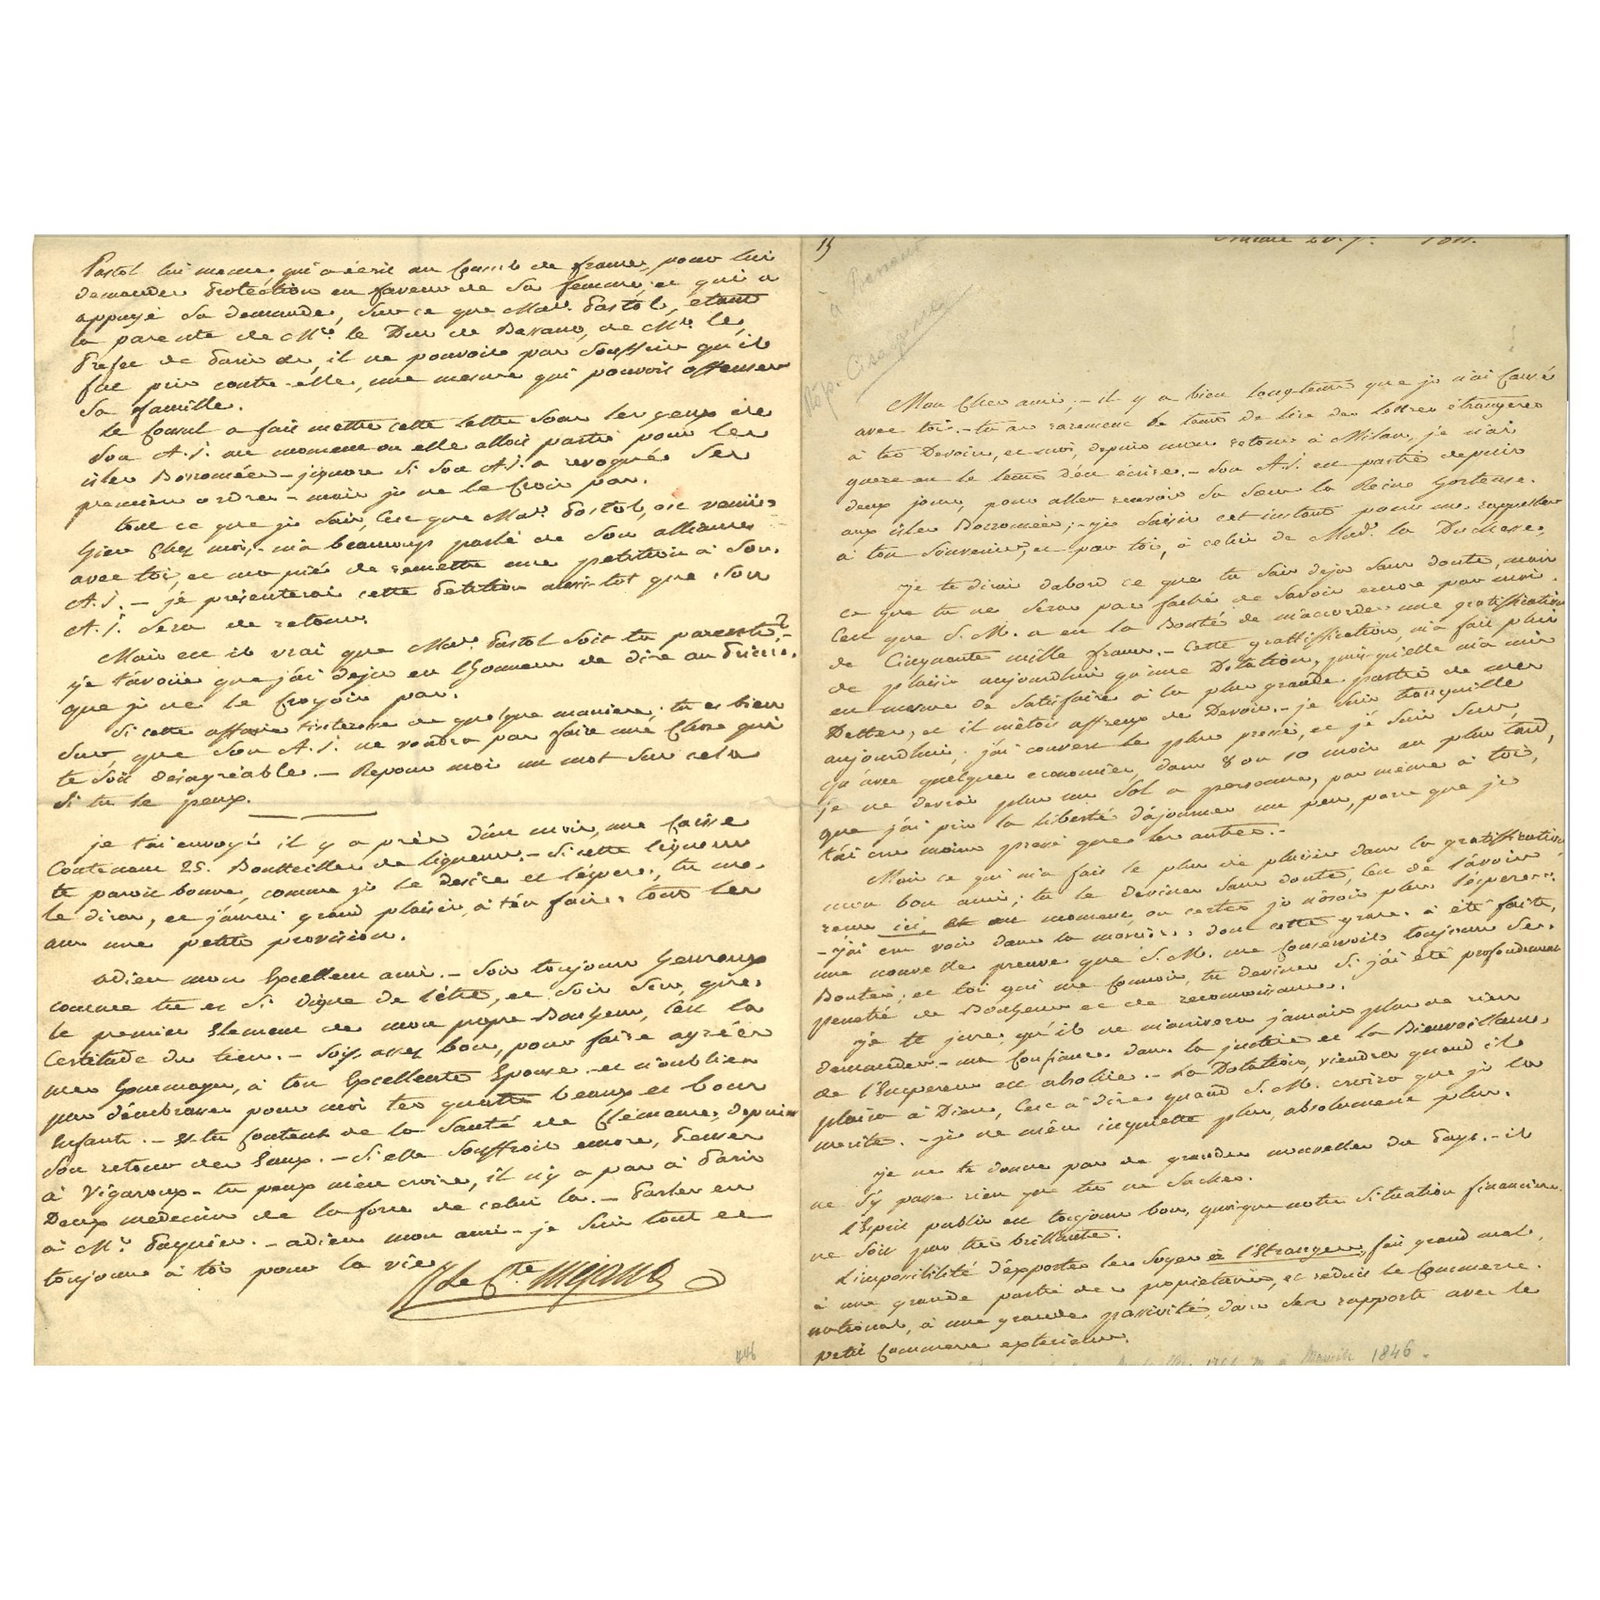 Pastol lui même, qui a écrit au Consul de france, pour lui
demander protection en faveur de sa femme, et qui a
appuyé sa demande, sur ce que Made. Pastol, etant
la parente de Mr. le Duc de Bassano, de Mr. le
Prefet de Paris &, il ne pouvoit pas souffrir qu'il
fut pris contre elle, une mesure qui pouvoit offenser
sa famille.
Le Consul a fait mettre cette lettre sous les yeux de
Son A.I. au moment ou elle alloit partir pour les
isles Borromées - j'ignore si Son A.I. a revoqué ses
premiers ordres - mais je ne le crois pas.
tout ce que je sais, c'est que Made. Pastol, est venüe
hier chez moi, - m'a beaucoup parlé de son alliance
avec toi, et m'a prié de remettre une petition à Son
A.I. - je presenterai cette petition aussi-tot que Son
A.I. sera de retour.
Mais est il vrai que Made. Pastol soit ta parente? -
je t'avoüe que j'ai deja eu l'honneur de dire au Prince,
que je ne le croyois pas.
Si cette affaire t'interesse de quelque maniere, tu es bien
sur, que Son A.I. ne voudra pas faire une chose qui
te soit desagréable. - Repons moi un mot sur cela
si tu le peux.
je t'ai envoyé il y a près d'un mois, une caisse
contenant 25. Bouteilles de liqueurs. - Si cette liqueur
te paroit bonne, comme je le desire et l'espere, tu me
le diras, et j'aurai grand plaisir, à t'en faire, tous les
ans une petite provision.
adieu mon Excellent ami. - Sois toujours heureux
comme tu es si digne de l'être, et sois sur, que
le premier Element de mon propre Bonheur, c'est la
Certitude du tien. - Sois assez bon, pour faire agréer
mes hommages, à ton Excellente Epouse - et n'oublies
pas d'embrasser pour moi tes quatre beaux et bons
Enfants. - Es tu content de la santé de Clémence, depuis
son retour des Eaux. - Si elle souffroit encore, penses
à Vigaroux - tu peux m'en croire, il n'y a pas à Paris
Deux medecins de la force de celui la. - Parles en
à Mr. Pasquier. - adieu mon ami - je suis tout et
toujours à toi pour la vie
Le Cte. Mejan
446
15
à
Mon cher ami, - il y a bien long-tems que je n'ai causé
avec toi. - tu as rarement le tems de lire des lettres étrangeres
à tes Devoirs, et moi, depuis mon retour à Milan, je n'ai
guere eu le tems d'en écrire. - Son A.I. est partie depuis
deux jours, pour aller recevoir sa sœur la Reine Hortense.
aux isles Borromées; - je saisis cet instant pour me rappeller
à ton souvenir, et par toi, à celui de Made. la Duchesse,
je te dirai d'abord ce que tu sais deja sans doute, mais
ce que tu ne seras pas faché de savoir encore par moi.
C'est que S.M. a eu la Bonté de m'accorder une gratiffication
de Cinquante mille francs. - Cette gratiffication, m'a fait plus
de plaisir aujourdhui qu'une Dotation, puisqu'elle m'a mis
en mesure de satisfaire à la plus grande partie de mes
Dettes, et il m'étoit affreux de Devoir. - je suis tranquille
aujourdhui, j'ai couvert le plus pressé, et je suis sur,
qu'avec quelques economies, dans 8 ou 10 mois au plus tard,
je ne devrai plus un sol a personne, pas même à toi,
que j'ai pris la liberté d'ajourner un peu, parce que je
t'ai cru moins pressé que les autres. -
Mais ce qui m'a fait le plus de plaisir dans la gratiffication,
mon bon ami, tu le devines sans doute, c'est de l'avoir
recue ici et au moment ou certes je n'osois plus l'esperer.
- j'ai cru voir dans la maniere, dont cette grace à été faite,
une nouvelle preuve que S.M. me conservoit toujours ses
Bontés; et toi qui me connois, tu devines si j'ai été profondement
penetré de Bonheur et de reconnoissance.
je te jure, qu'il ne m'arrivera jamais plus de rien
demander. - ma confiance dans la justice et la Bienveillance,
de l'Empereur est absolüe. - La Dotation, viendra quand il
plaira à Dieu, c'est à dire quand S.M. croira que je la
merite. - je ne m'en inquiette plus, absolument plus.
je ne te donne pas de grandes nouvelles du Pays. - il
ne s'y passe rien que tu ne saches.
l'Esprit public est toujours bon, quoique notre situation financiere
ne soit pas très brillante.
L'impossibilité d'exporter les soyes à l'Etranger, fait grand mal
à une grande partie des proprietaires, et reduit le Commerce.
national, à une grande passivité, dans ses rapports avec le
petit Commerce exterieur.
1846.